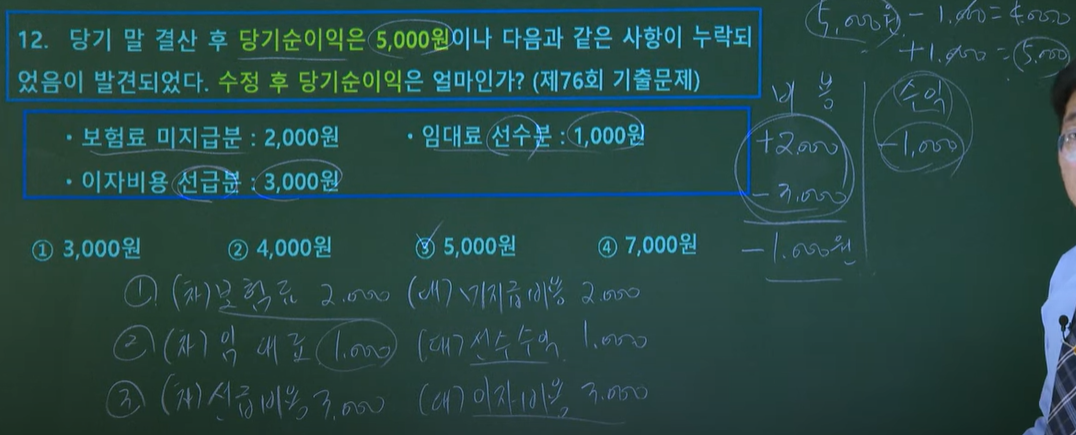 12. 당기 말 결산 후 당기순이익은 5,000원이나 다음과 같은 사항이 누락되
었음이 발견되었다. 수정 후 당기순이익은 얼마인가? (제76회 기출문제)
• 보험료 미지급분 : 2,000원 • 임대료 선수분 : 1,000원
• 이자비용 선급분 : 3,000원
① 3,000원 ② 4,000원 ③ 5,000원 ④ 7,000원
① (차) 보험료 2.000 (대) 미지급비용 2.000
② (차) 임대료 1.000 (대) 선수수익 1.000
③ (차) 선급비용 3.000 (대) 이자비용 3.000
5,000원 - 1.000 = 4000
+1.000 = 5.000
비용 수익
+2.000 -1,000
-3.000
-1.000원